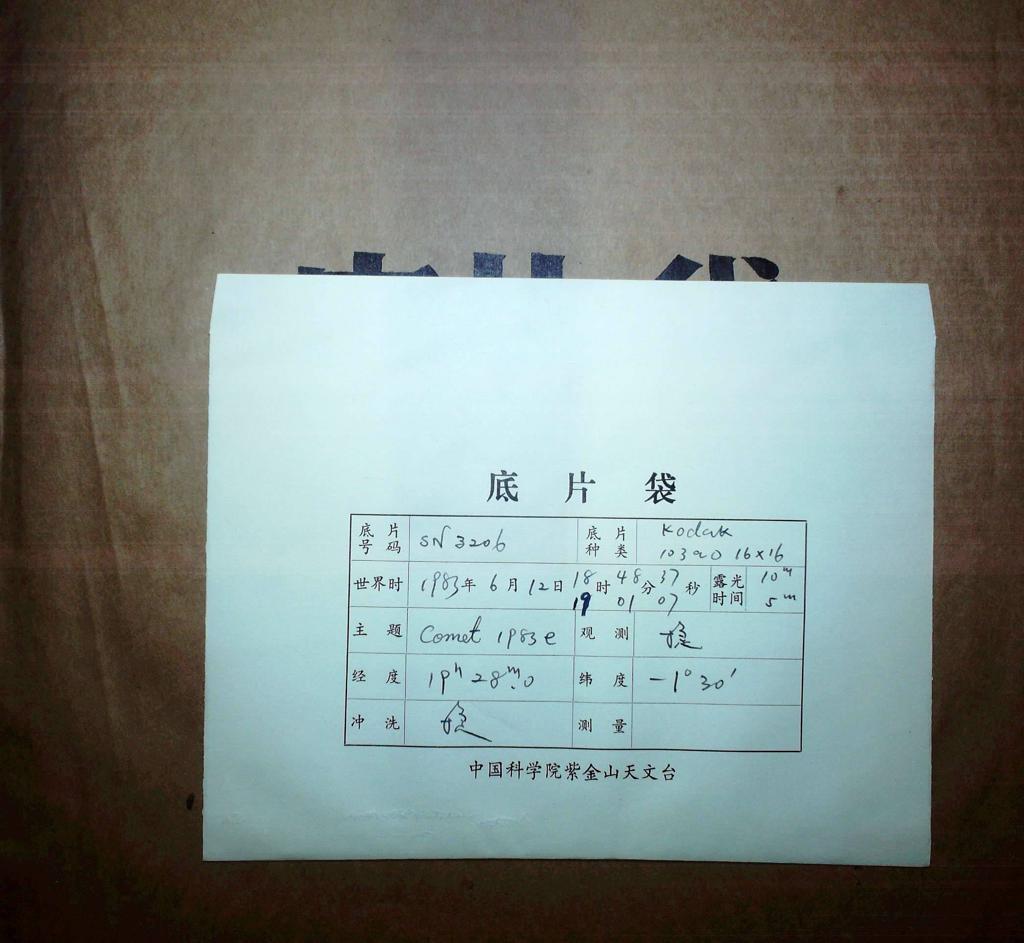 底片袋
底片袋
底片号码 SN 3206 底片种类 Kodak 103aO 16×16
世界时 1983年 6月 12日 18时 48分 37秒 露光时间 10m
19 01 07 5m
主题 Comet 1983e 观测
经度 19h 28m.0 纬度 -1° 30′
冲洗 测量
中国科学院紫金山天文台